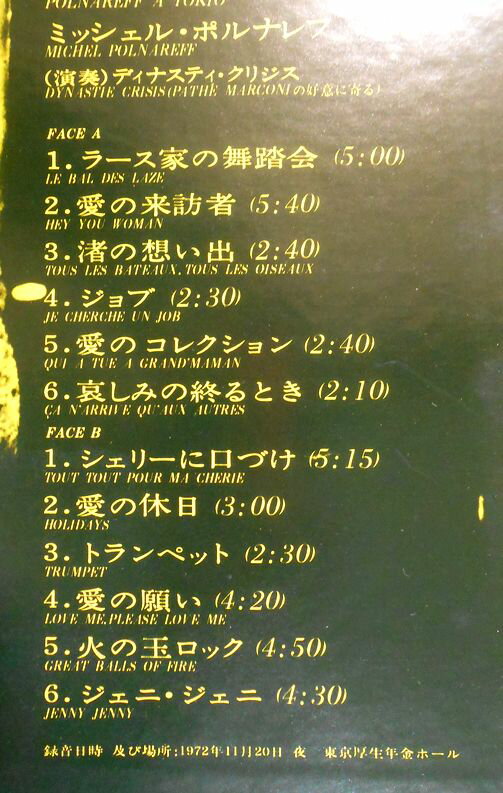 POLNAREFF A TOKIO
ミッシェル・ポルナレフ
MICHEL POLNAREFF
(演奏)ディナスティ・クリジス
DYNASTIE CRISIS(PATHE MARCONIの好意に寄る)
FACE A
1.ラース家の舞踏会 (5:00)
LE BAL DES LAZE
2.愛の来訪者 (5:40)
HEY YOU WOMAN
3.渚の想い出 (2:40)
TOUS LES BATEAUX,TOUS LES OISEAUX
4.ジョブ (2:30)
JE CHERCHE UN JOB
5.愛のコレクション (2:40)
QUI A TUE A GRAND'MAMAN
6.哀しみの終るとき (2:10)
ÇA N'ARRIVE QU'AUX AUTRES
FACE B
1.シェリーに口づけ (5:15)
TOUT TOUT POUR MA CHERIE
2.愛の休日 (3:00)
HOLIDAYS
3.トランペット (2:30)
TRUMPET
4.愛の願い (4:20)
LOVE ME,PLEASE LOVE ME
5.火の玉ロック (4:50)
GREAT BALLS OF FIRE
6.ジェニ・ジェニ (4:30)
JENNY JENNY
録音日時 及び場所;1972年11月20日 夜 東京厚生年金ホール